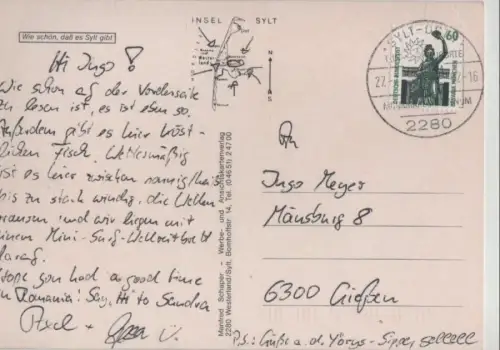 Wie schön, daß es Sylt gibt
Hi Ingo!
Wie schon auf der Vorderseite
zu lesen ist, es ist eben so.
Außerdem gibt es hier köst-
lichen Fisch. Wettermäßig
ist es hier zwischen sonnig/heiß
bis zu stark windig, die Wellen
brausen und wir liegen mit
einem Mini-Surf-Wellreitbrett
darauf.
Hope you had a good time
in Romania! Say Hi to Sandra
Axel +
INSEL SYLT
N
S
Manfred Schaper - Werbe- und Ansichtskartenverlag
2280 Westerland/Sylt, Bomhoffstr. 14, Tel. (04651) 24700
SYLT-OST
27.
-16
2280
60
An
Ingo Meyer
Mäusburg 8
6300 Gießen
P.S.: Grüße a. d.